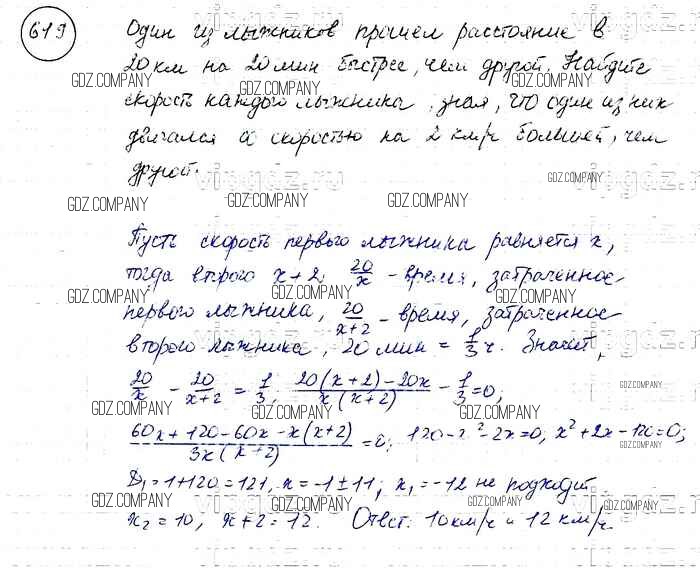 619
Один из лыжников прошел расстояние в
20 км на 20 мин быстрее, чем другой. Найдите
скорость каждого лыжника, зная, что один из них
двигался со скоростью на 2 км/ч большей, чем
другой.
Пусть скорость первого лыжника равняется x,
тогда второго x+2, 20/x - время, затраченное
первого лыжника, 20/(x+2) - время, затраченное
второго лыжника, 20 мин = 1/3 ч. Значит,
20/x - 20/(x+2) = 1/3; (20(x+2)-20x)/(x(x+2)) - 1/3 = 0;
(60x+120-60x-x(x+2))/(3x(x+2)) = 0; 120-x²-2x=0; x²+2x-120=0;
D₁=1+120=121, x=-1±11; x₁=-12 не подходит
x₂=10, x+2=12. Ответ: 10 км/ч и 12 км/ч.
GDZ.COMPANY
vipgdz.ru